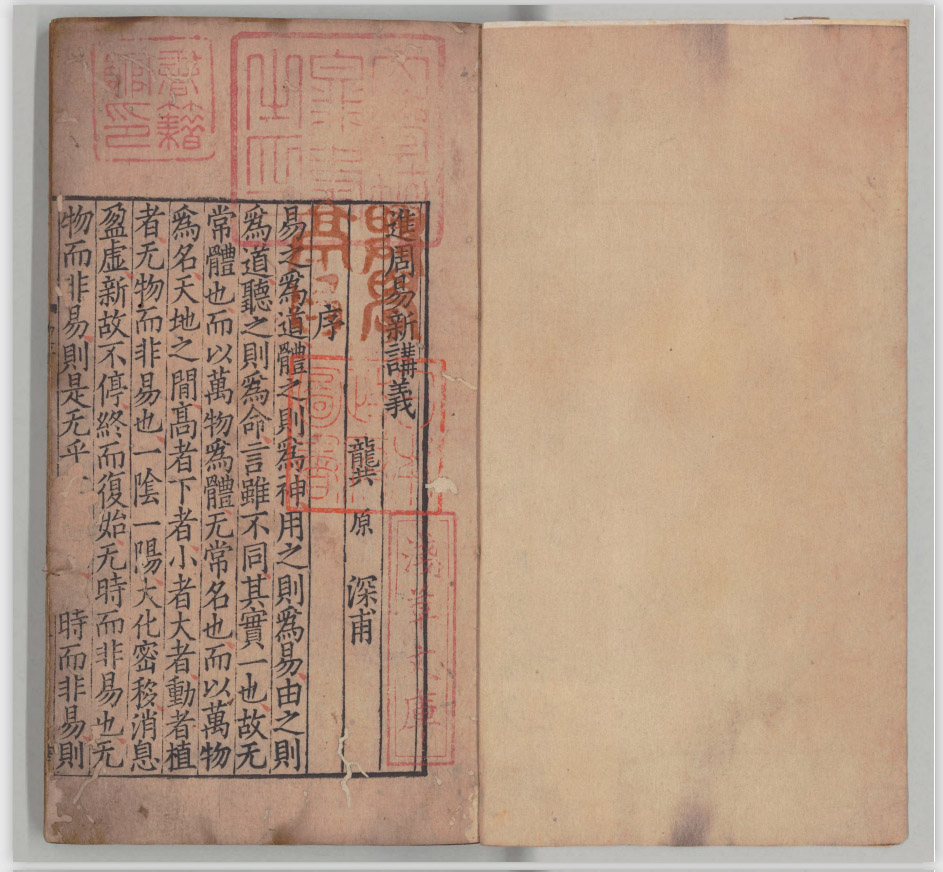 進周易新講義
龔原 深甫
序
易之爲道體之則爲神用之則爲易由之則
爲道聽之則爲命言雖不同其實一也故无
常體也而以萬物爲體无常名也而以萬物
爲名天地之閒髙者下者小者大者動者植
者无物而非易也一陰一陽大化密移消息
盈虛新故不停終而復始无時而非易也无
物而非易則是无乎 時而非易則
書籍館印
淺草文庫